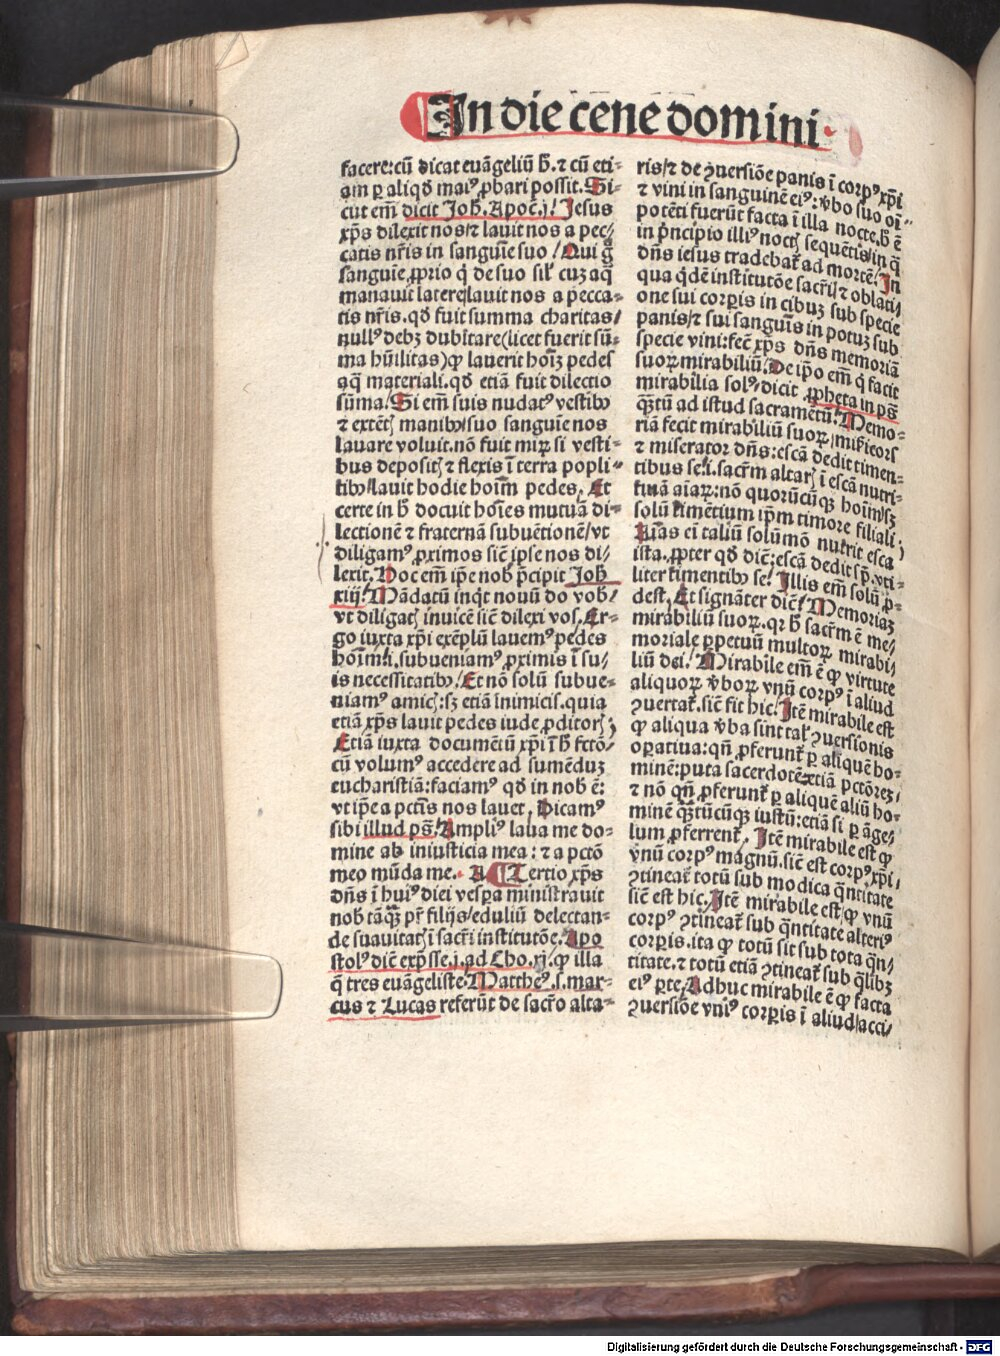 In die cene domini
facere: cū dicat euāgeliū h̄. ⁊ cū eti⸗
am ꝑ aliqd̓ maiꝰ ꝓbari possit. Si⸗
cut em̄ dicit Joh̄. Apoc̄. j./ Jesus
xp̄s dilexit nos/⁊ lauit nos a pec⸗/
catis nr̄is in sanguīe suo / Qui g̊
sanguīe ꝓprio q̇ de suo sil̓ cuꝫ aq̄
manauit latere/lauit nos a pecca⸗
tis nr̄is. qd̓ fuit summa charitas/
nullꝰ debꝫ dubitare (licet fuerit sū⸗
ma hūilitas) ꝙ lauerit hoīꝫ pedes
aq̄ materiali. qd̓ etiā fuit dilectio
sūma/ Si em̄ suis nudatꝰ vestibꝰ
⁊ extēt̨ manibꝰ/suo sanguīe nos
lauare voluit. nō fuit miꝝ si vesti⸗
bus deposit̨ ⁊ flexis ī terra popli⸗
tibꝰ/lauit hodie hoīm pedes, Et
certe in h̄ docuit hoīes mutuā di⸗
lectionē ⁊ fraternā subuētionē/vt
diligamꝰ ꝓximos sic̄ ipse nos di⸗/
lexit. Hoc em̄ ip̄e nob̄ p̄cipit Joh̄
xiij/ Mādatū inqͥt nouū do vob̄/
vt diligat̨ inuicē sic̄ dilexi vos. Er⸗
go iuxta xp̄i exēplū lauemꝰ pedes
hoīm/.i. subueniamꝰ ꝓximis ī su/
is necessitatibꝰ/ Et nō solū subue⸗
niamꝰ amic̨: sꝫ etiā inimicis. quia
etiā xp̄s lauit pedes iude ꝓditor̨;
Etiā iuxta documētū xp̄i ī h̄ fctō:
cū volumꝰ accedere ad sumēduꝫ
eucharistiā: faciamꝰ qd̓ in nob ē:
vt ip̄e a pctīs nos lauet, Dicamꝰ
sibi illud ps̄. Ampliꝰ laua me do⸗
mine ab iniusticia mea: ⁊ a pctō
meo mūda me. Tertio xp̄s
dn̄s ī huiꝰ diei vesꝑa ministrauit
nob̄ tāqꝫ̄ pr̄ filijs/eduliū delectan⸗
de suauitat̨ ī sacr̄i institutōe. Apo
stolꝰ dic̄ exp̄sse .i. ad Cho. xj. ꝙ illa
q̄ tres euāgeliste. Mattheꝰ .s. mar⸗
cus ⁊ Lucas referūt de sacr̄o alta⸗
ris/⁊ de ꝯuersiōe panis ī corpꝰ xp̄i
⁊ vini in sanguinē eiꝰ: v̓bo suo oī⸗
potēti fuerūt facta ī illa nocte. h̄ ē
in p̄ncipio illiꝰ noct̨ sequētis/in q̄
dn̄s iesus tradebat̄ ad mortē/ In
qua qͥdē institutōe sacr̄i/⁊ oblati/
one sui corꝑis in cibuꝫ sub specie
panis/⁊ sui sanguīs in potuꝫ sub
specie vini: fec̄ xp̄s dn̄s memoriā
suoꝝ mirabiliū. De ip̄o em̄ q̇ facit
mirabilia solꝰ/dicit ꝓpheta in ps̄
qꝫ̄tū ad istud sacramētū. Memo⸗
riā fecit mirabiliū suoꝝ/ mi̓sicors
⁊ miserator dn̄s: escā dedit timen⸗
tibus se/.i. sacr̄m altar̨ ī escā nutri⸗
tiuā aīaꝝ: nō quorūcūqꝫ hoīm/sꝫ
solū timētium ip̄m timore filiali;
Aīas eī taliū solūmō nutrit esca
ista. ꝓpter qd̓ dic̄: escā dedit sp̄.vti⸗
liter timentibꝰ se/ Illis em̄ solū ꝓ⸗
dest, Et signāter dic̄/ Memoriaꝫ
mirabiliū suoꝝ. qꝛ h̄ sacr̄m ē me⸗
moriale ꝑpetuū multoꝝ mirabi⸗/
liū dei/ Mirabile em̄ ē ꝙ virtute
aliquoꝝ v̓boꝝ vnū corpꝰ ī aliud
ꝯuertat̄. sic̄ fit hic. Itē mirabile est
ꝙ aliqua v̓ba sint tal̓ ꝯuersionis
oꝑatiua: qn̄ ꝓferunt̄ ꝑ aliquē ho⸗
minē: puta sacerdotē: etiā pctōreꝫ/
⁊ nō qn̄ ꝓferunt̄ ꝑ aliquē aliū ho⸗
minē qꝫ̄tūcūqꝫ iustū: etiā si ꝑ āge/
lum ꝓferrent̄. Itē mirabile est ꝙ
vnū corpꝰ magnū. sic̄ est corpꝰ xp̄i/
ꝯtineat̄ totū sub modica qn̄titate
sic̄ est hic. Itē mirabile est/ꝙ vnū
corpꝰ ꝯtineat̄ sub qn̄titate alteriꝰ
corꝑis. ita ꝙ totū sit sub tota qn̄⸗
titate. ⁊ totū etiā ꝯtineat̄ sub qͥlibꝫ
eiꝰ ꝑte. Adhuc mirabile ē ꝙ facta
ꝯuersiōe vniꝰ corꝑis ī aliud/acci/
Digitalisierung gefördert durch die Deutsche Forschungsgemeinschaft - DFG